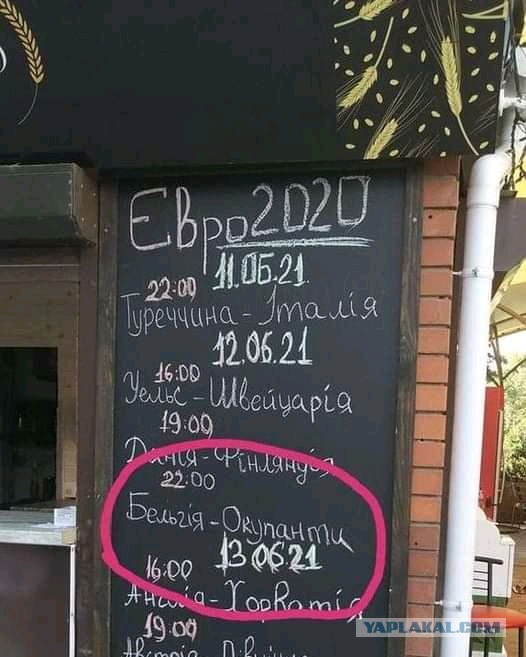 Євро2020
11.06.21
22:00
Туреччина - Італія
12.06.21
16:00
Уельс - Швейцарія
19:00
Данія - Фінляндія
22:00
Бельгія - Окупанти
13.06.21
16:00
Англія - Хорватія
19:00
Австрія -
YAPLAKAL.COM
YAPLAKAL.COM